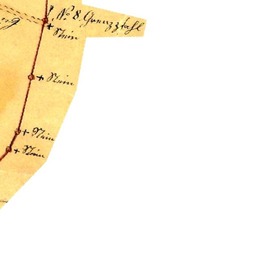 No 8. Grenzpfahl
+ Stein
+ Stein
+ Stein
+ Stein